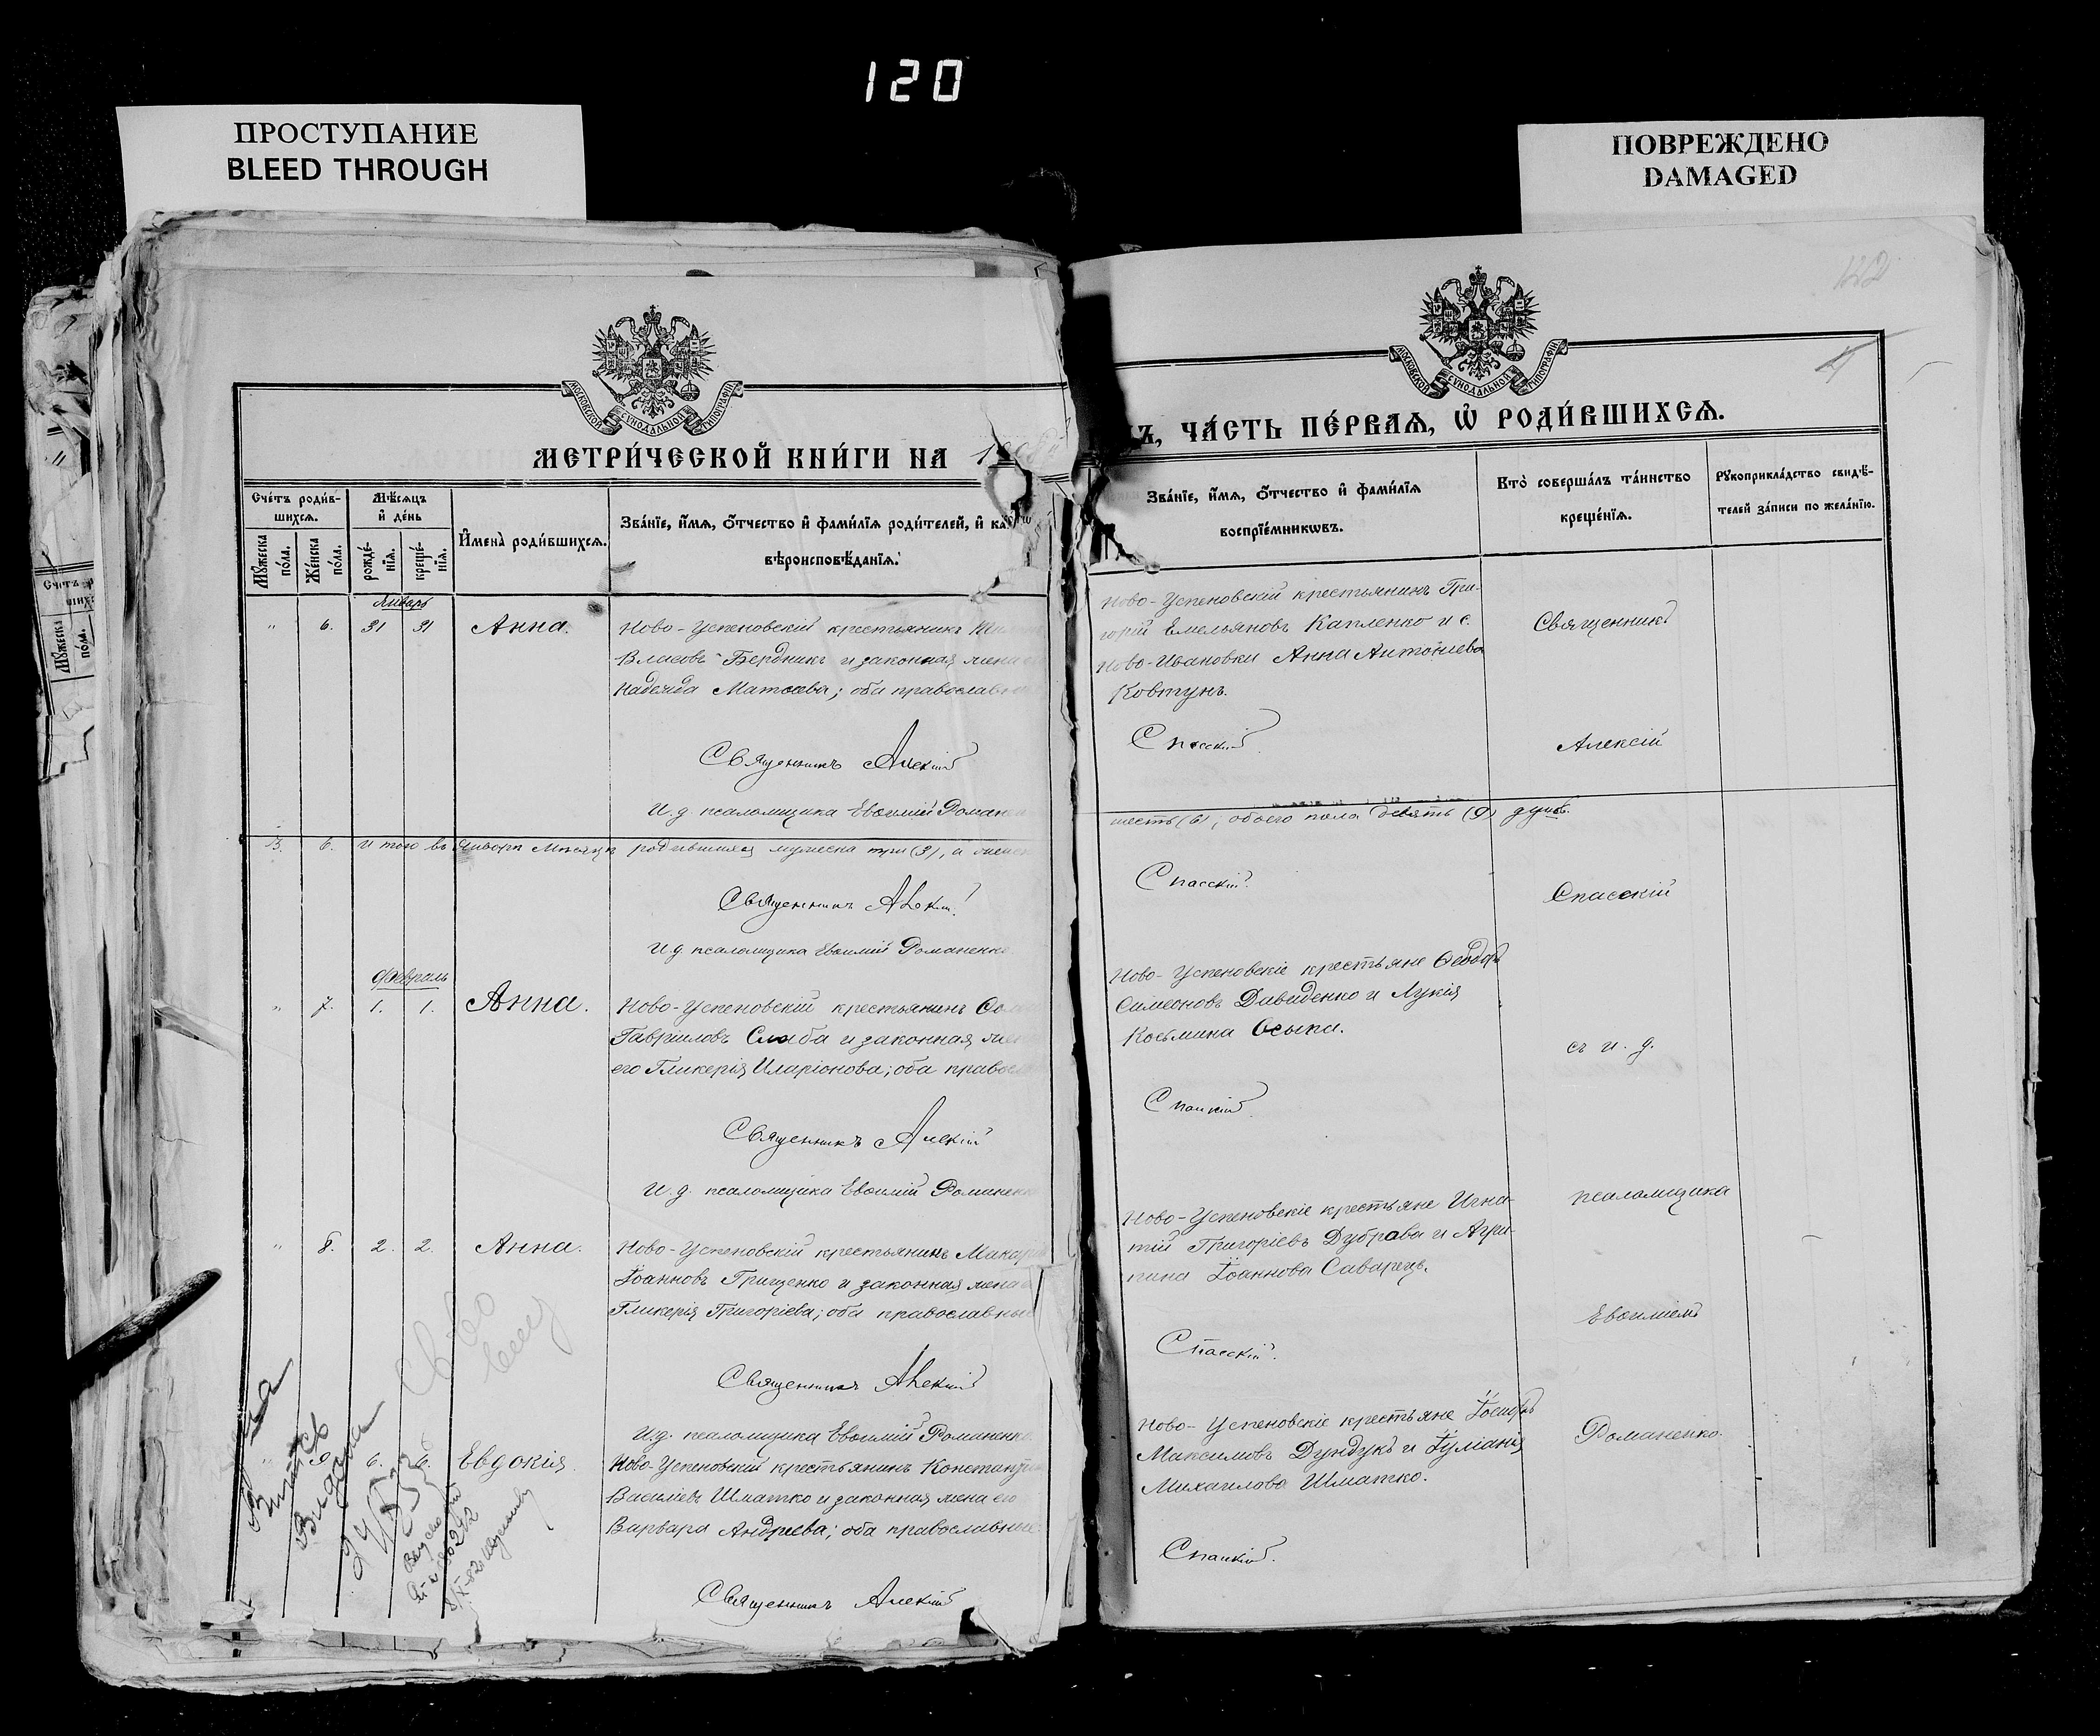 120
ПРОСТУПАНИЕ
BLEED THROUGH
ПОВРЕЖДЕНО
DAMAGED
МОСКОВСКОЙ СѴНОДАЛЬНОЙ ТИПОГРАФІИ
МЕТРИ́ЧЕСКОЙ КНИ́ГИ НА
Сче́тъ роди́в-
шихсѧ.
Мѣ́сѧцъ
и҆ де́нь
И҆мена̀ роди́вшихсѧ.
Зва́нїе, и҆́мѧ, ѻ҆́тчество и҆ фами́лїѧ роди́телей, и҆
вѣроисповѣ́данїѧ.
Мꙋ́жеска по́ла.
Же́нска по́ла.
рожде́-нїѧ.
креще́-нїѧ.
Январь
" 6. 31 31 Анна. Ново-Успеновскій крестьянинъ
Власовъ Бердникъ и законная жена
Надежда Матѳеева; оба православн
Священникъ Алексій
И. д. псаломщика Евѳимій Роман
3. 6. Итого въ Январѣ мѣсяцѣ родившихся мужеска три (3), а женск
Священникъ Алексій
И. д. псаломщика Евѳимій Романенко
Февраль
" 7. 1. 1. Анна. Ново-Успеновскій крестьянинъ
Гавріиловъ Слаба и законная жен
его Гликерія Иларіонова; оба правос
Священникъ Алексій
И. д. псаломщика Евѳимій Романенко
" 8. 2. 2. Анна. Ново-Успеновскій крестьянинъ Макарій
Іоанновъ Грищенко и законная жена
Гликерія Григоріева; оба православные
Священникъ Алексій
И. д. псаломщика Евѳимій Романенко
" 9. 6. 6. Евдокія. Ново-Успеновскій крестьянинъ Константи
Василіевъ Шматко и законная жена его
Варвара Андреева; оба православные
Священникъ Алексій
МОСКОВСКОЙ СѴНОДАЛЬНОЙ ТИПОГРАФІИ
Ъ, ЧА́СТЬ ПЕ́РВАѦ, Ѡ҆ РОДИ́ВШИХСѦ.
Зва́нїе, и҆́мѧ, ѻ҆́тчество и҆ фами́лїѧ
воспрїе́мникѡвъ.
Кто̀ соверша́лъ та́инство
креще́нїѧ.
Рꙋкоприкла́дство свидѣ́-
телей за́писи по жела́нїю.
Ново-Успеновскій крестьянинъ Гри-
горій Емельяновъ Капленко и с.
Ново-Ивановки Анна Антоніева
Ковтунъ.
Спасскій
Священникъ
Алексій
шесть (6), обоего пола девять (9) душъ.
Спасскій
Спасскій
Ново-Успеновскіе крестьяне Ѳеодоръ
Симеоновъ Давиденко и Лукія
Косьмина Осыка.
съ и. д.
Спасскій
псаломщика
Ново-Успеновскіе крестьяне Игна-
тій Григоріевъ Дубрава и Агри-
пина Іоаннова Саварецъ.
Евѳиміемъ
Спасскій.
Ново-Успеновскіе крестьяне Іосифъ
Максимовъ Дундукъ и Іуліанія
Михаилова Шматко.
Романенко.
Спасскій.